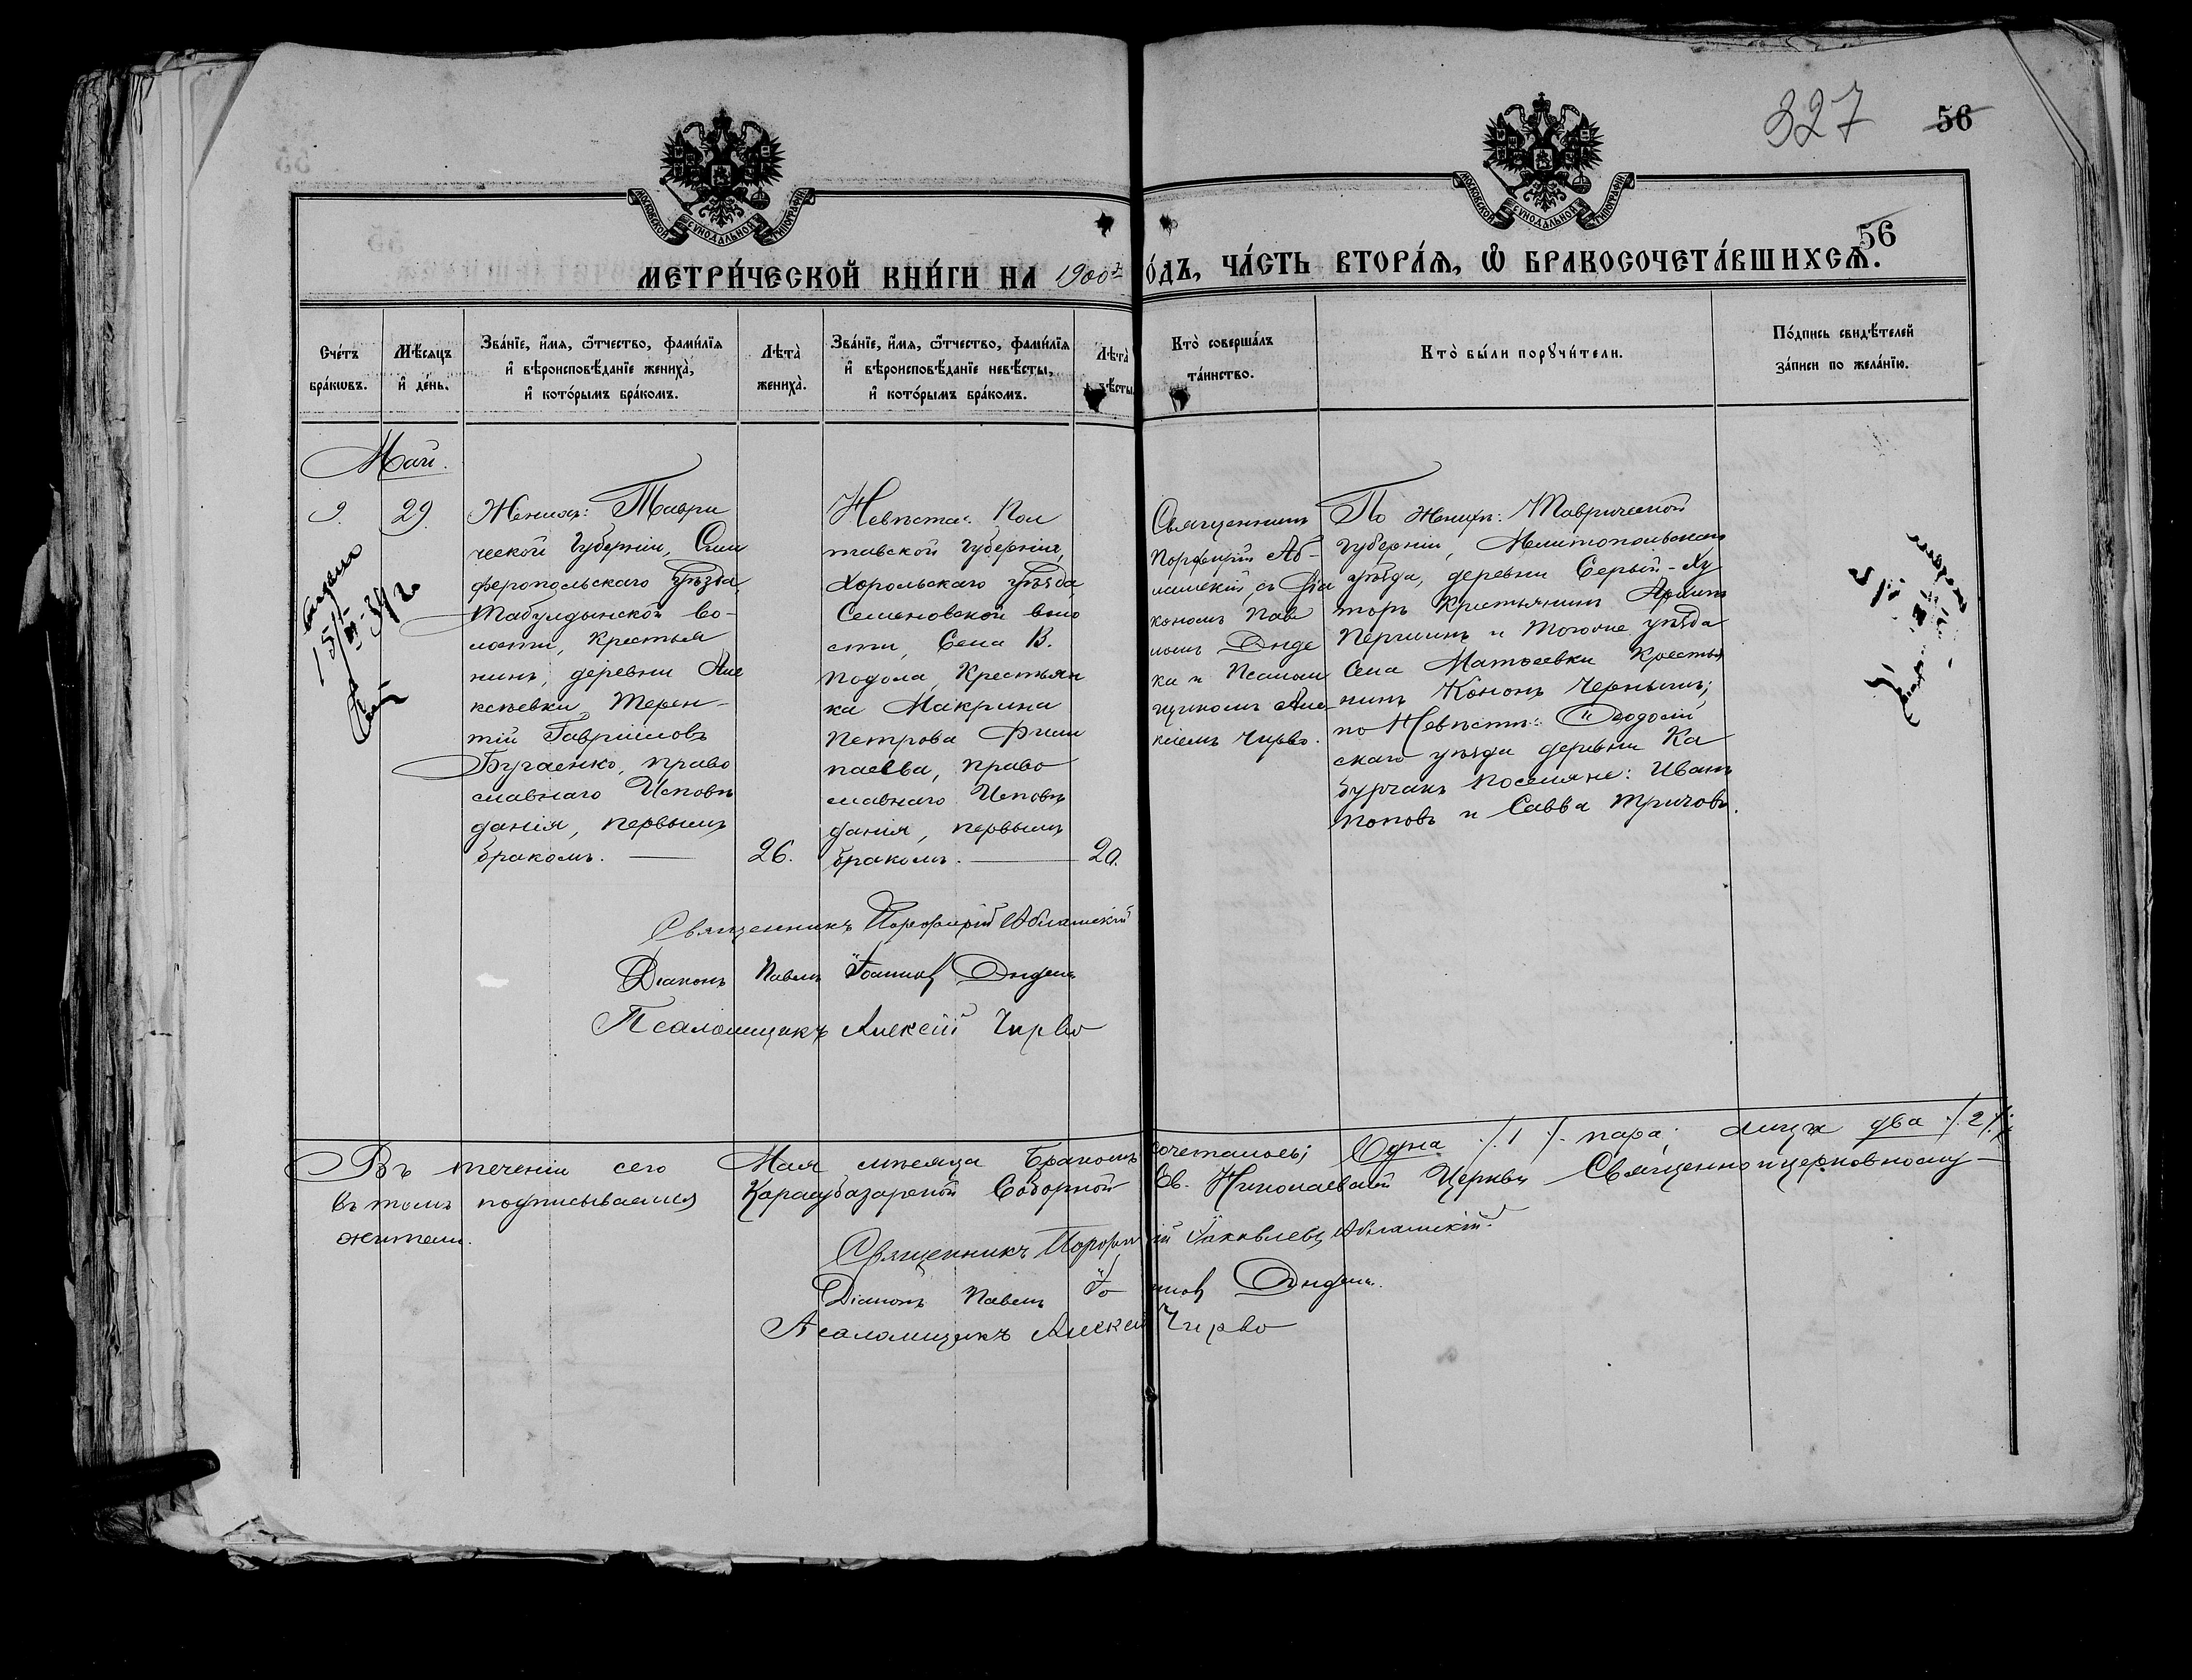 327
56
56
МОСКОВСКОЙ СУНОДАЛЬНОЙ ТИПОГРАФІИ
МОСКОВСКОЙ СУНОДАЛЬНОЙ ТИПОГРАФІИ
МЕТРИ́ЧЕСКОЙ КНИ́ГИ НА 1900й
О́ДЪ, ЧА́СТЬ ВТОРА́Я, Ѿ БРАКОСОЧЕТА́ВШИХСѦ.
Сче́тъ
бра́кѡвъ.
Мѣ́сяцъ
и҆ де́нь.
Зва́нїе, и҆́мя, ѻ҆́тчество, фами́лїя
и҆ вѣроисповѣ́данїе жениха̀,
и҆ кото́рымъ бра́комъ.
Лѣта̀
жениха̀.
Зва́нїе, и҆́мя, ѻ҆́тчество, фами́лїя
и҆ вѣроисповѣ́данїе невѣ́сты,
и҆ кото́рымъ бра́комъ.
Лѣта̀
вѣ́сты
Кто̀ соверша́лъ
та́инство.
Кто̀ бы́ли порꙋчи́тели.
По́дпись свидѣ́телей
за́писи по жела́нїю.
Май.
9.
29.
Женихъ: Таври
ческой Губерніи, Сим
феропольскаго Уѣзда,
Табулдынской во-
лости, Крестья
нинъ, деревни Але
ксѣевки Терен-
тій Гавріиловъ
Бугаенко, право
славнаго Исповѣ
данія, первымъ
бракомъ.
26.
Невѣста: Пол
тавской Губерніи,
Хорольскаго уѣзда
Семеновской воло
сти, Села В.
Подола, Крестьян
ка Макрина
Петрова Фили
паева, право
славнаго Исповѣ
данія, первымъ
бракомъ.
20.
Священникъ
Порфирій Аб-
лашскій съ Діа
кономъ Пав
ломъ Диде
ка и Псалом
щикомъ Але-
ксіемъ Чирво.
По Женихѣ: Таврической
Губерніи, Мелитопольскаго
уѣзда, деревни Серый-Ху
торъ Крестьянинъ
и тогоже уѣзда
Села Матвеевки Крестья
нинъ Кононъ Чернышъ;
по Невѣстѣ: Ѳеодосій
скаго уѣзда деревни Ка
бурчакъ поселяне: Иванъ
Поповъ и Савва Тричовъ.
Священникъ Порфирій Аблашскій
Діаконъ Павелъ Іоанновъ
Псаломщикъ Алексій Чирво
Въ теченіи сего Мая мѣсяца Бракомъ сочеталось; Одна ./. 1 ./. пара; лицъ два ./. 2 ./.
въ томъ подписываемся Карасубазарской Соборной Св. Николаевской Церкви Священноицерковнослу-
жители.
Священникъ Порфирій Іаковлевъ Аблашскій
Діаконъ Павелъ
Псаломщикъ Алексій Чирво